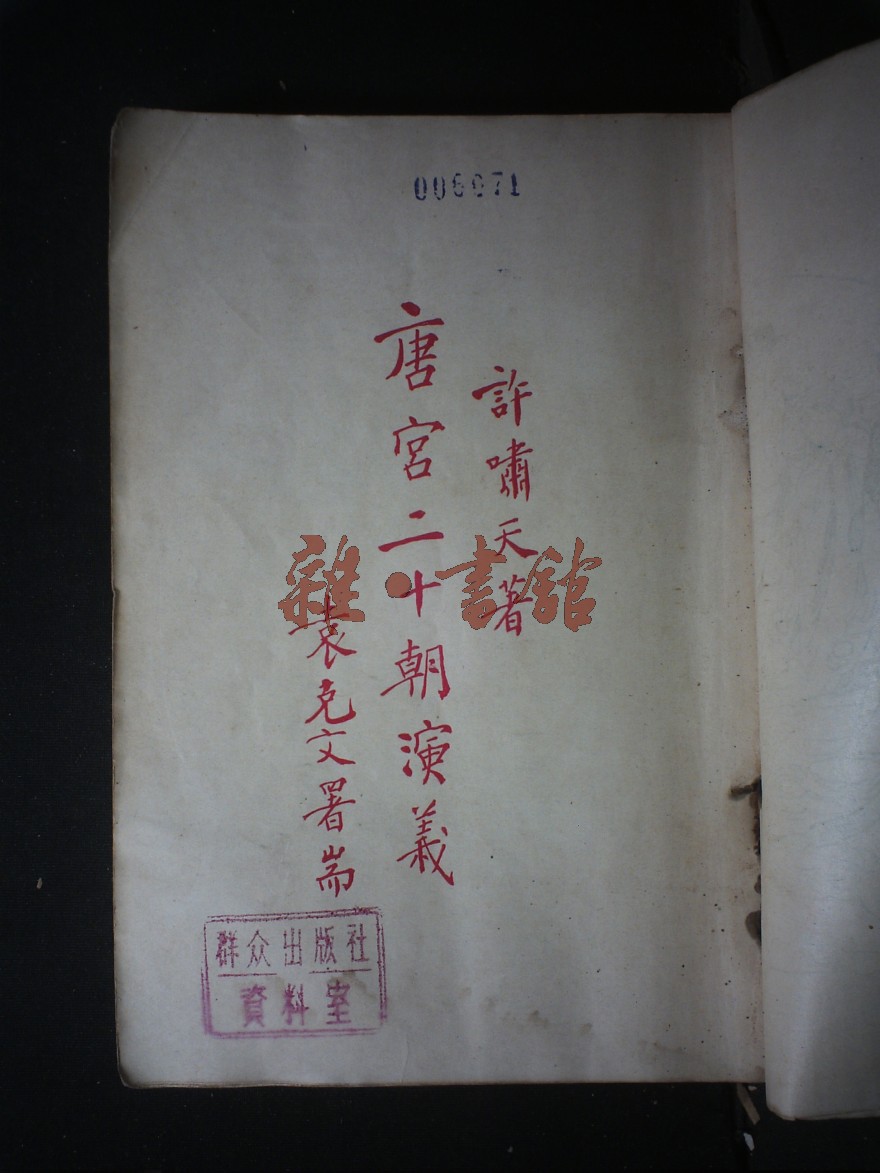 006671
許嘯天著
唐宮二十朝演義
袁克文署耑
雜·書館
群众出版社
資料室